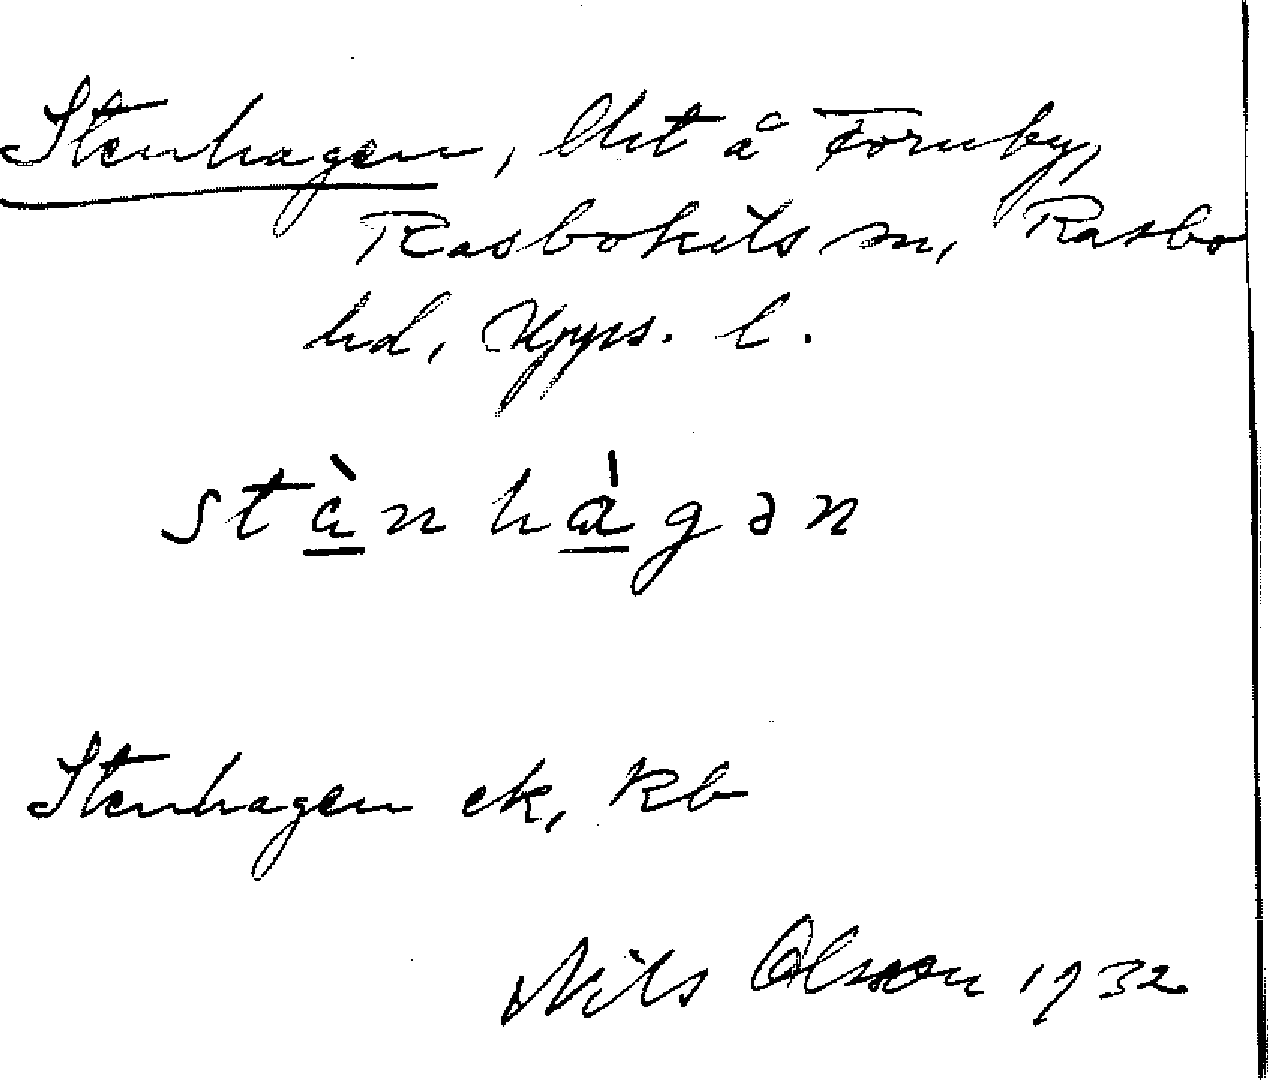 Stenhagen, lht å Fornby,
Rasbokils sn, Rasbo
hd, Upps. l.
stὰnhágən
Stenhagen ek, Rb
Nils Olsson 1932